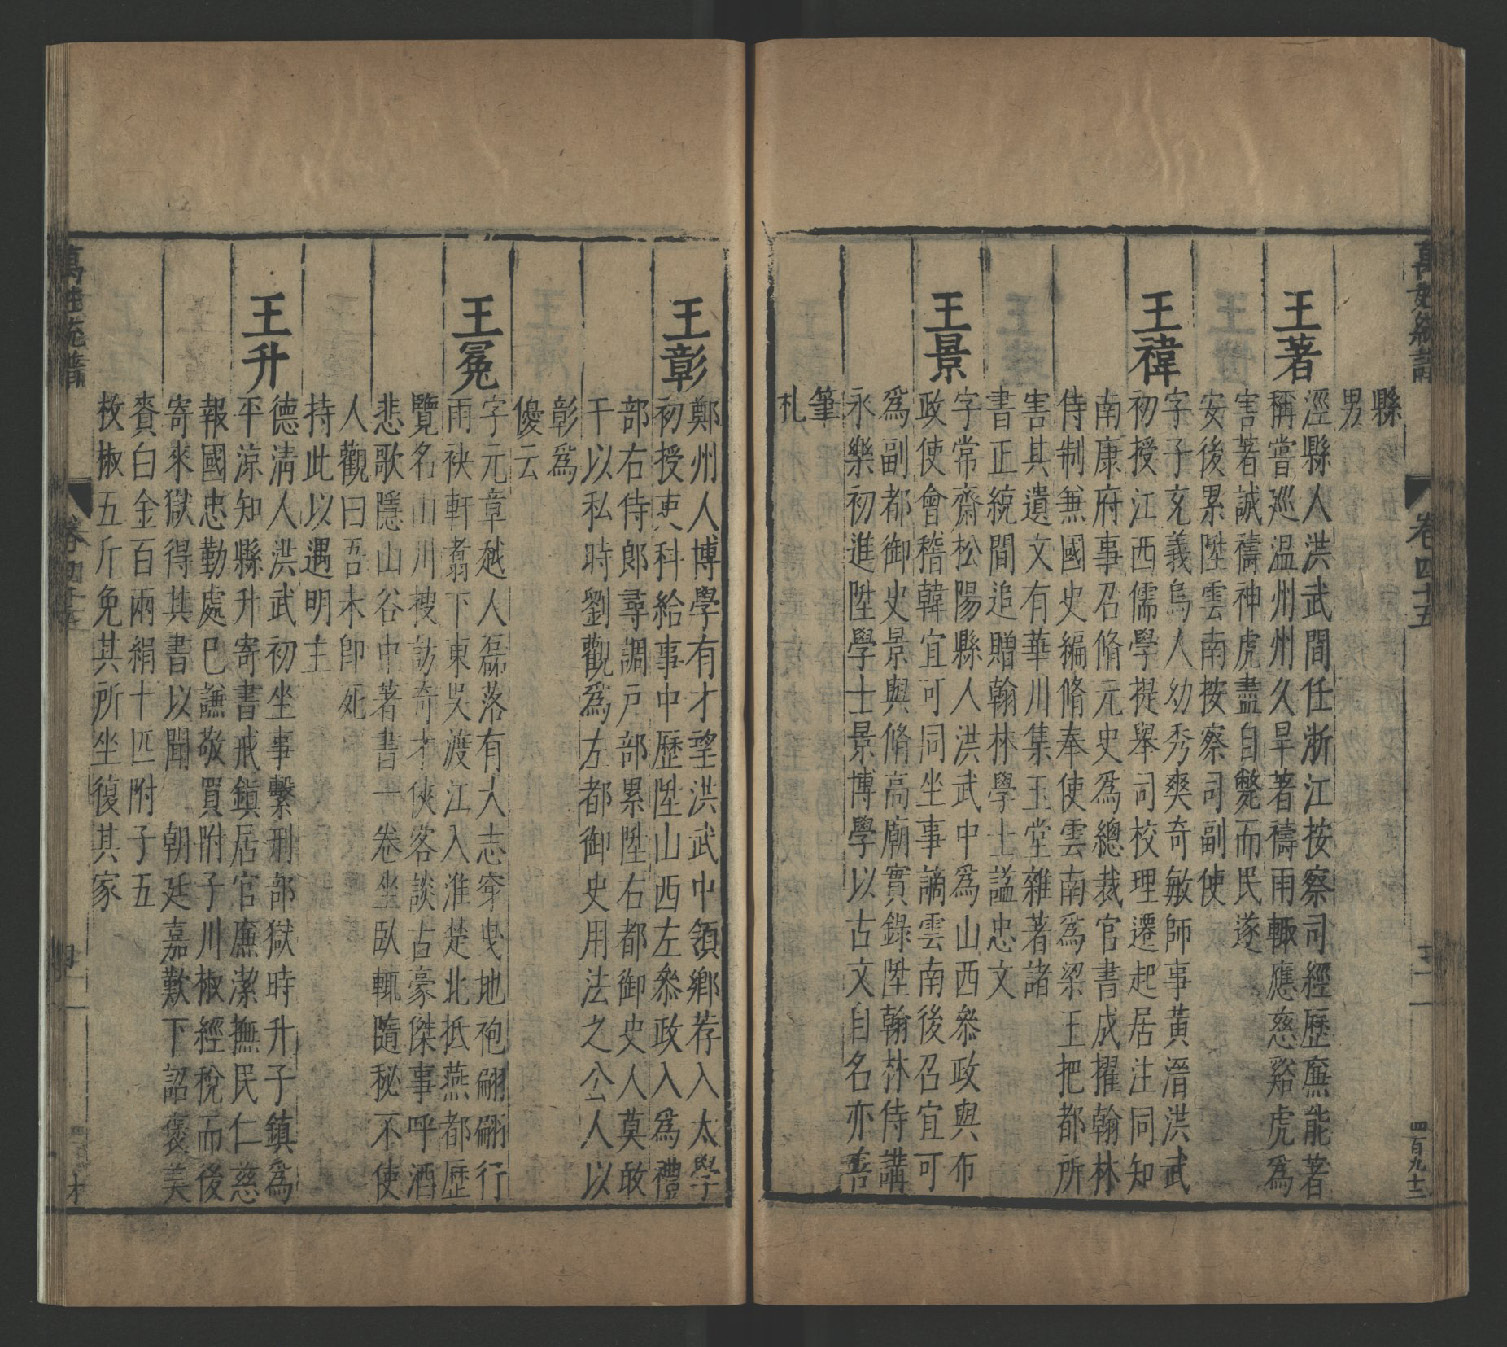 萬姓統譜
卷四十五
三
四百九十三
縣
男
王著
涇縣人洪武間任浙江按察司經歷廉能著
稱嘗巡温州州久旱著禱雨輙應慈谿虎爲
害著誠禱神虎盡自斃而民遂
安後累陞雲南按察司副使
王禕
字子充義烏人幼秀爽奇敏師事黃溍洪武
初授江西儒學提舉司校理遷起居注同知
南康府事召脩元史爲總裁官書成擢翰林
侍制兼國史編脩奉使雲南爲梁王把都所
害其遺文有華川集玉堂雜著諸
書正統間追贈翰林學士謚忠文
王景
字常齋松陽縣人洪武中爲山西叅政與布
政使會稽韓宜可同坐事謫雲南後召宜可
爲副都御史景與脩高廟實錄陞翰林侍講
永樂初進陞學士景博學以古文自名亦善
筆
札
王彰
鄭州人博學有才望洪武中領鄉荐入太學
初授吏科給事中歷陞山西左叅政入爲禮
部右侍郎尋調戸部累陞右都御史人莫敢
干以私時劉觀爲左都御史用法之公人以
彰爲
優云
王冕
字元章越人磊落有大志穿曳地袍翩翩行
雨袂軒翥下東吳渡江入淮楚北抵燕都歷
覽名山川搜訪奇才俠客談古豪傑事呼酒
悲歌隱山谷中著書一卷坐臥輒隨秘不使
人觀曰吾未即死
持此以遇明主
王升
德清人洪武初坐事繫刑部獄時升子鎮爲
平涼知縣升寄書戒鎮居官廉潔撫民仁慈
報國忠勤處已謙敬買附子川椒經稅而後
寄來獄得其書以聞　朝廷嘉歎下詔褒美
賚白金百兩絹十匹附子五
枚椒五斤免其所坐復其家
萬姓統譜